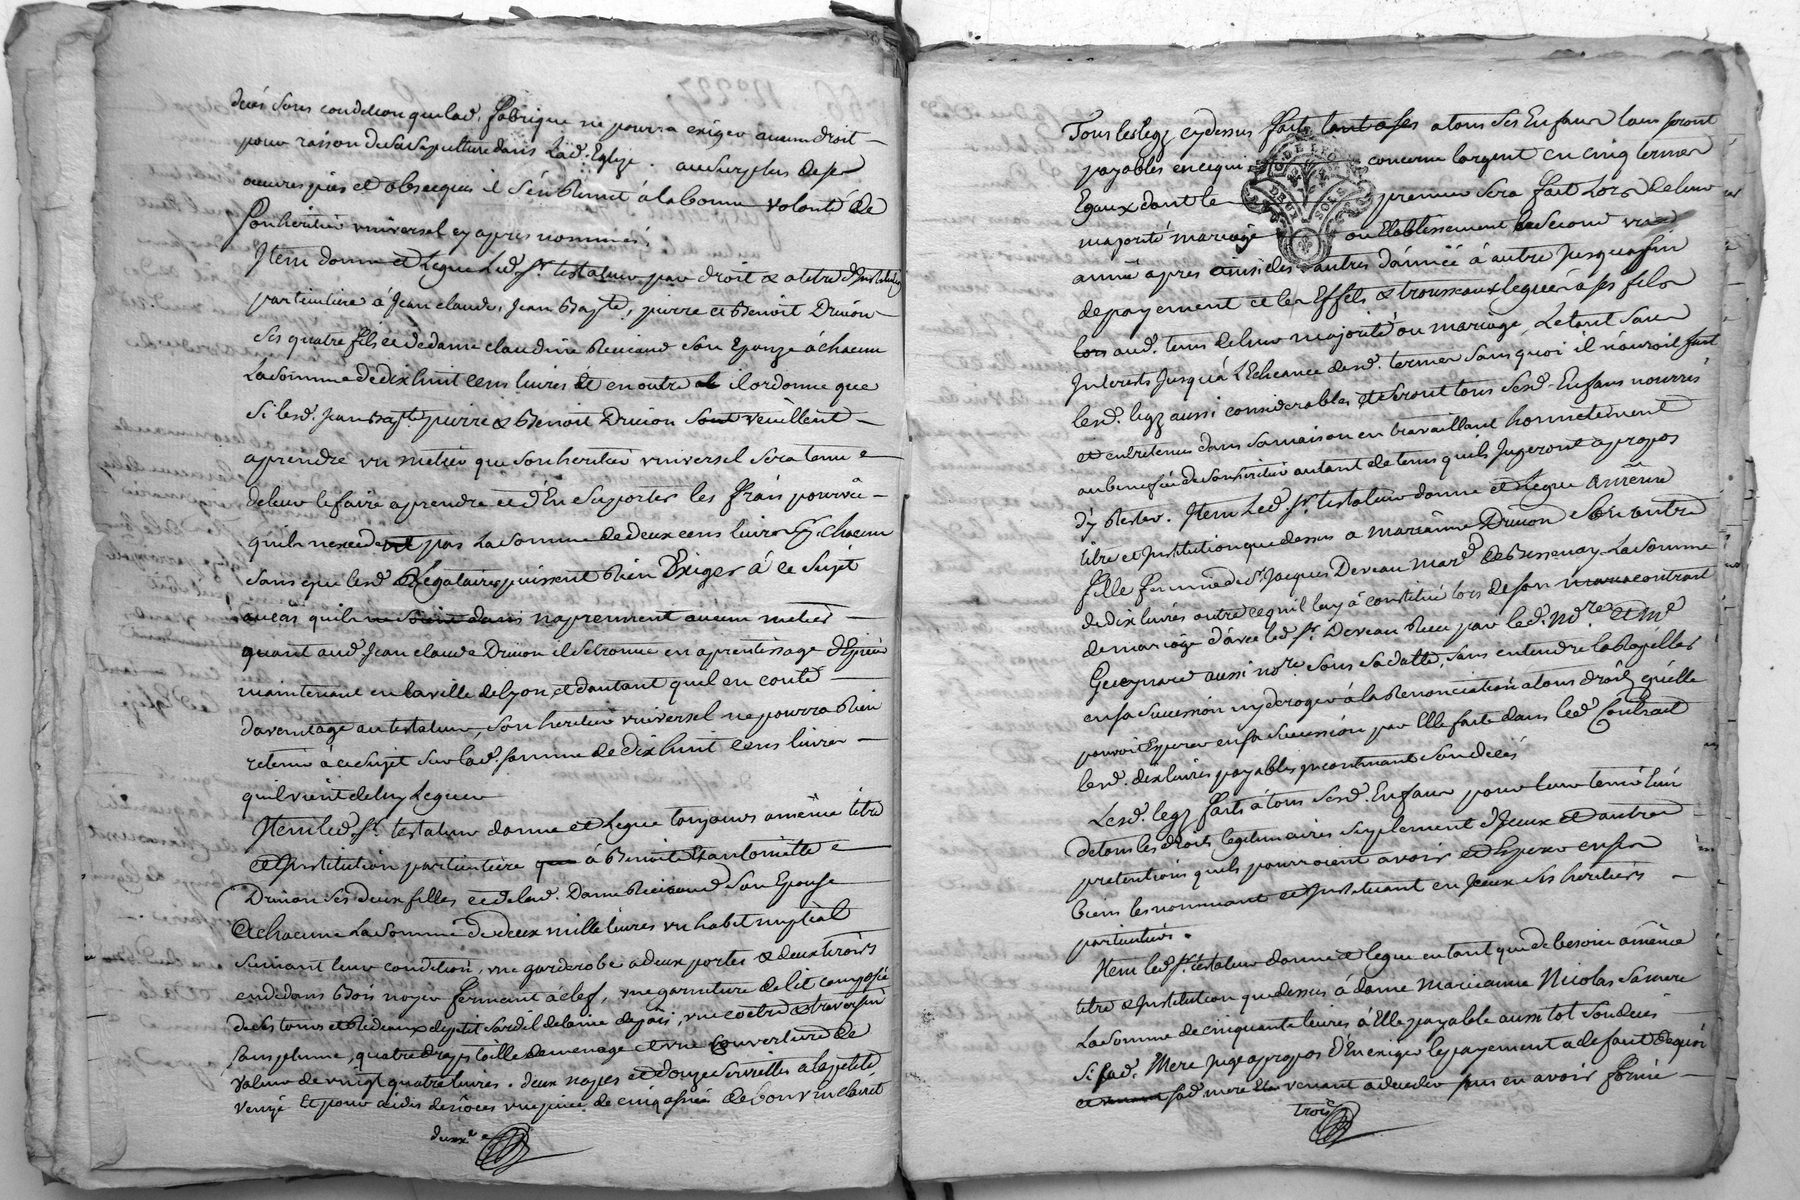 decés sans condition que lad. fabrique ne pourra exiger aucun droit
pour raison de sa sepulture dans lad. Eglize. au surplus de ses
œuvres pies et obseques il s'en remet à la bonne volonté de
son heritier universel cy apres nommé.
Item donne et legue led. Sr. testateur par droit & a titre d'Institution
particuliere à Jean claude, Jean Bapte, pierre et Benoit Drivon
ses quatre fils et de dame claudine son Epouze à chacun
la somme de dix huit cens livres et en outre il ordonne que
si lesd. Jean Bapte pierre & Benoit Drivon sont veüillent
aprendre un métier que son heritier universel sera tenu
de leur le faire aprendre et d'En suporter les frais pourvû
qu'ils n'excedent pas la somme de deux cens livres pr chacun
sans que lesd. Legataires puissent rien Exiger à ce sujet
au cas qu'ils n'aprennent aucun métier
quant aud. Jean claude Drivon il se trouve en aprentissage
maintenant en la ville de Lyon, et d'autant qu'il en coute
davantage au testateur, son heritier universel ne pourra rien
retenir à ce sujet sur lad. somme de dix huit cens livres
qu'il vient de luy Leguer
Item led. Sr. testateur donne et Legue toujours a même titre
et Institution particuliere à Benoite et antoinette
Drivon ses deux filles et de lad. Dame son Epouse
a chacune la somme de deux mille livres un habit nuptial
suivant leur condition, une garderobe a deux portes & deux tiroirs
en dedans Bois noyer fermant à clef, une garniture de lit composée
de ses tours et Rideaux de païs, une coetre & traversin
sans plume, quatre draps toille de menage et une couverture de
valeur de vingt quatre livres. deux napes et douze serviettes a la petite
venize Et pour aides de nôces une piece de cinq asnées de bon vin clairet
deuxe
Tous les legz cy dessus faits tant a ses a tous ses Enfans leur seront
payables en ce qui concerne l'argent en cinq termes
Egaux dont le premier sera fait Lors de leur
majorité mariage ou Etablissement le second une
année apres ainsi des autres d'année à autre jusqu'a fin
de payement et les Effets & trousseaux leguées à ses filles
lors aud. tems de leur majorité ou mariage, Le tout sans
Interests jusqu'à l'Echeance desd. termes sans quoi il n'auroit fait
lesd. legz aussi considerables, et seront tous sesd. Enfans nourris
et entretenus dans sa maison en travaillant honnetement
au benefice de son heritier autant de tems qu'ils Jugeront a propos
d'y Rester. Item Led. Sr. testateur donne et Legue a même
titre et Institution que dessus a marianne Drivon son autre
fille femme de Sr. Jacques Deveau mard de Bessenay la somme
de dix livres outre ce qu'il luy à constitué lors de son contract
de mariage d'avec led. Sr. Deveau Reçu par led. Nore. et Me
Gueynard aussi nore. sous sa datte, sans entendre la Rapeller
en sa succession ny deroger à la Renonciation a tous droits qu'elle
pouvoit Esperer en sa succession par Elle faite dans led. Contract
lesd. dix livres payables incontinant son decés
Lesd. legz faits à tous sesd. Enfans pour leur tenir lieu
de tous les droits legitimaires suplement d'Iceux et autres
pretentions quils pourroient avoir et Esperer en ses
biens les nommant et Instituant en Iceux ses heritiers
particuliers.
Item led. Sr. testateur donne et legue en tant que de besoin a même
titre & Institution que dessus à dame marianne Nicolas sa mere
la somme de cinquante livres à Elle payable aussi tot son decés
si sad. Mere juge apropos d'En exiger le payement a defaut de quoi
sad. mere venant a deceder sans en avoir formé
troise
DE LYON
DEUX SOLS